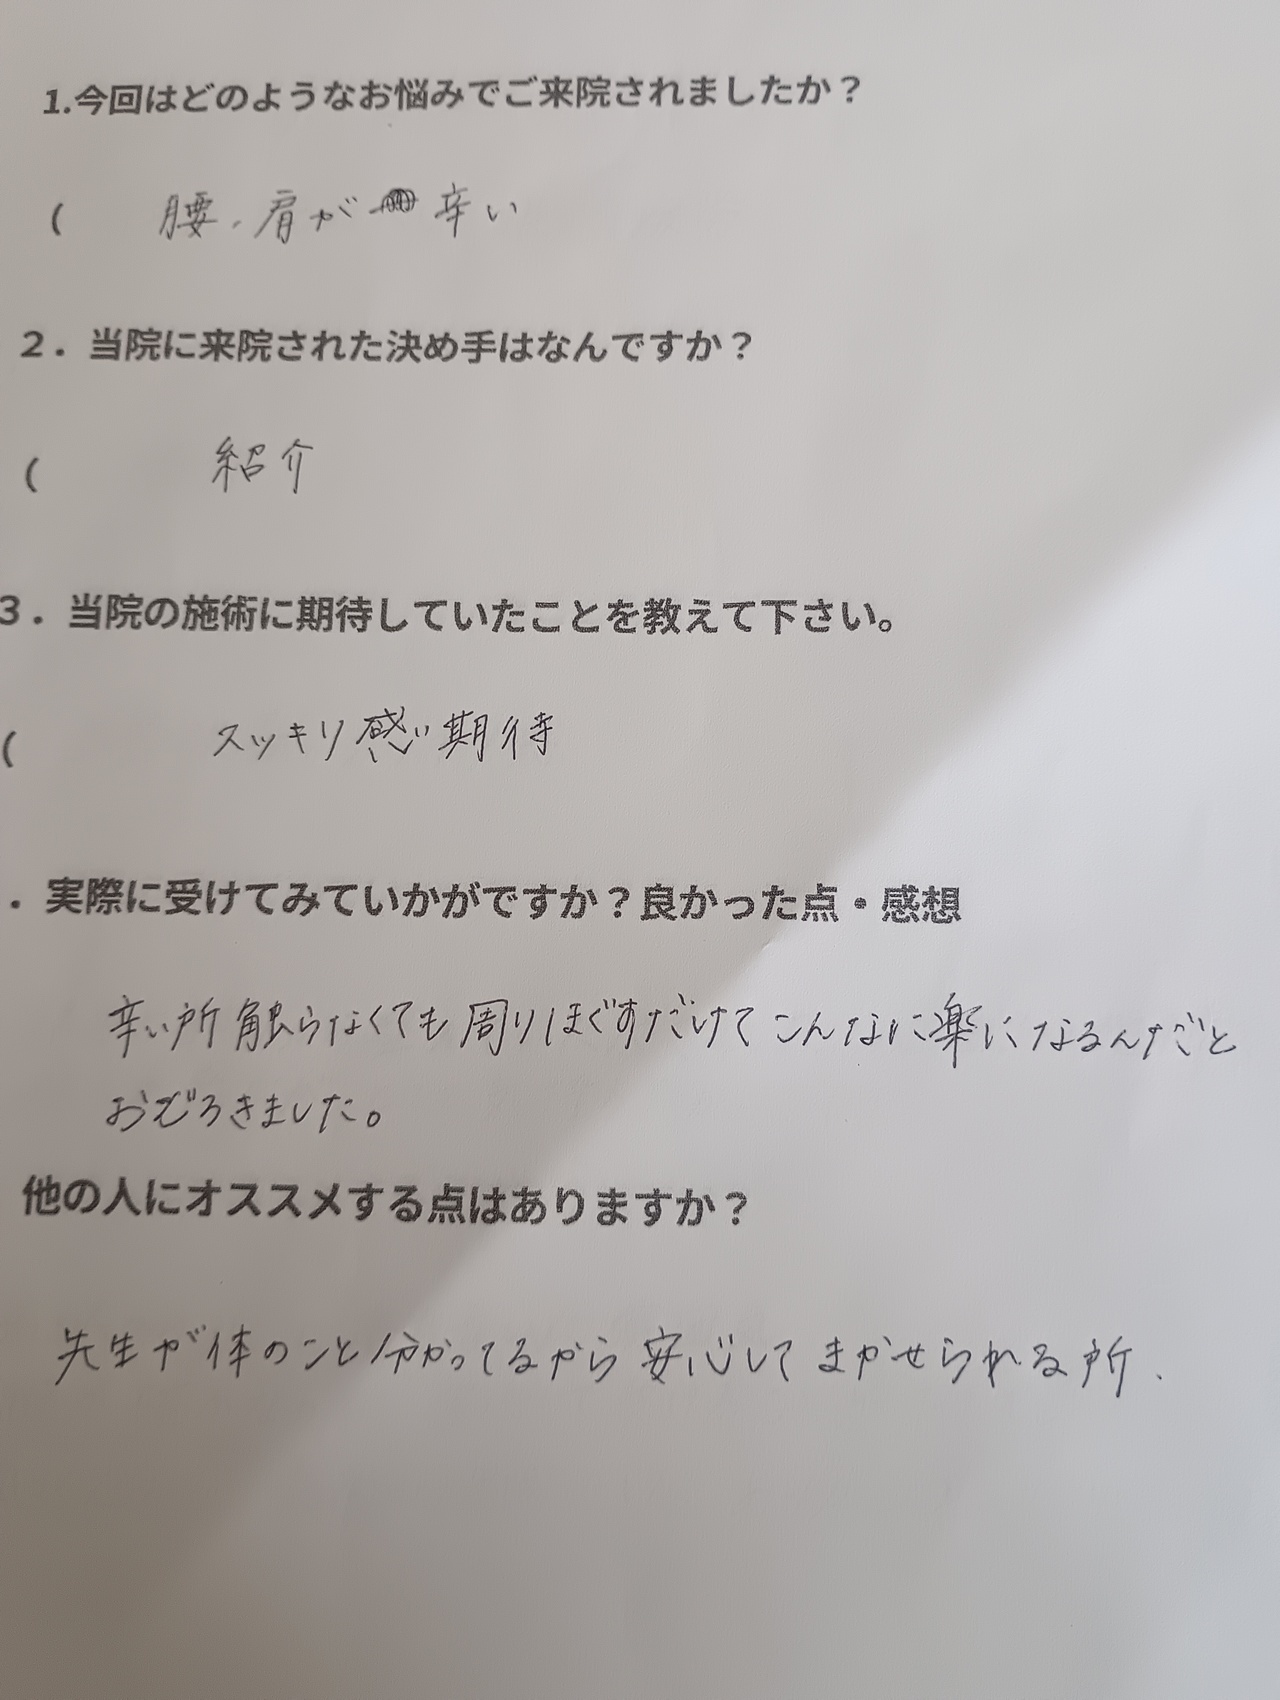 1.今回はどのようなお悩みでご来院されましたか？
( 腰、肩が 辛い
２．当院に来院された決め手はなんですか？
( 紹介
３．当院の施術に期待していたことを教えて下さい。
( スッキリ感い期待
．実際に受けてみていかがですか？良かった点・感想
辛い所触らなくても周りほぐすだけでこんなに楽になるんだと
おどろきました。
他の人にオススメする点はありますか？
先生が体のこと分かってるから安心してまかせられる所、